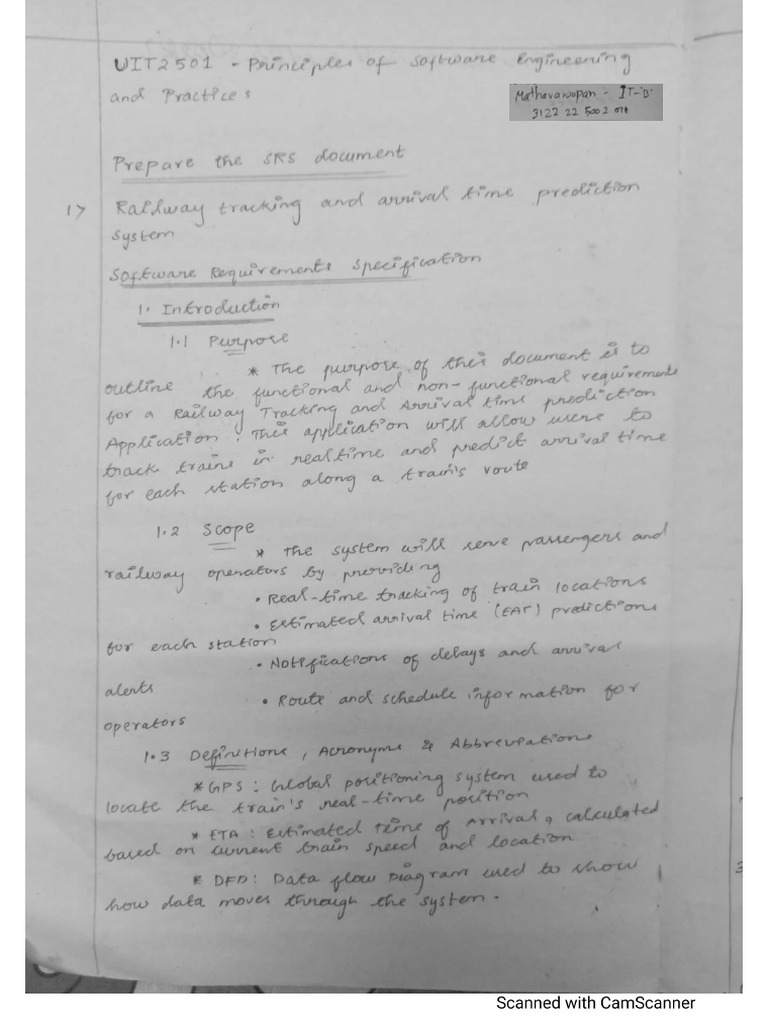 UIT2501 - Principles of Software Engineering
and Practices
Mathavaroopan - IT-'B'
3122 22 5002 071
Prepare the SRS document
1> Railway tracking and arrival time prediction
system
Software Requirements Specification
1. Introduction
1.1 Purpose
* The purpose of this document is to
outline the functional and non-functional requirements
for a Railway Tracking and Arrival time prediction
Application. This application will allow users to
track trains in realtime and predict arrival time
for each station along a train's route
1.2 Scope
* The system will serve passengers and
railway operators by providing
• Real-time tracking of train locations
• Estimated arrival time (EAT) predictions
for each station
• Notifications of delays and arrival
alerts
• Route and schedule information for
operators
1.3 Definitions, Acronyms & Abbreviations
* GPS: Global positioning system used to
locate the train's real-time position
* ETA: Estimated time of Arrival, calculated
based on current train speed and location
* DFD: Data flow Diagram used to show
how data moves through the system.
Scanned with CamScanner